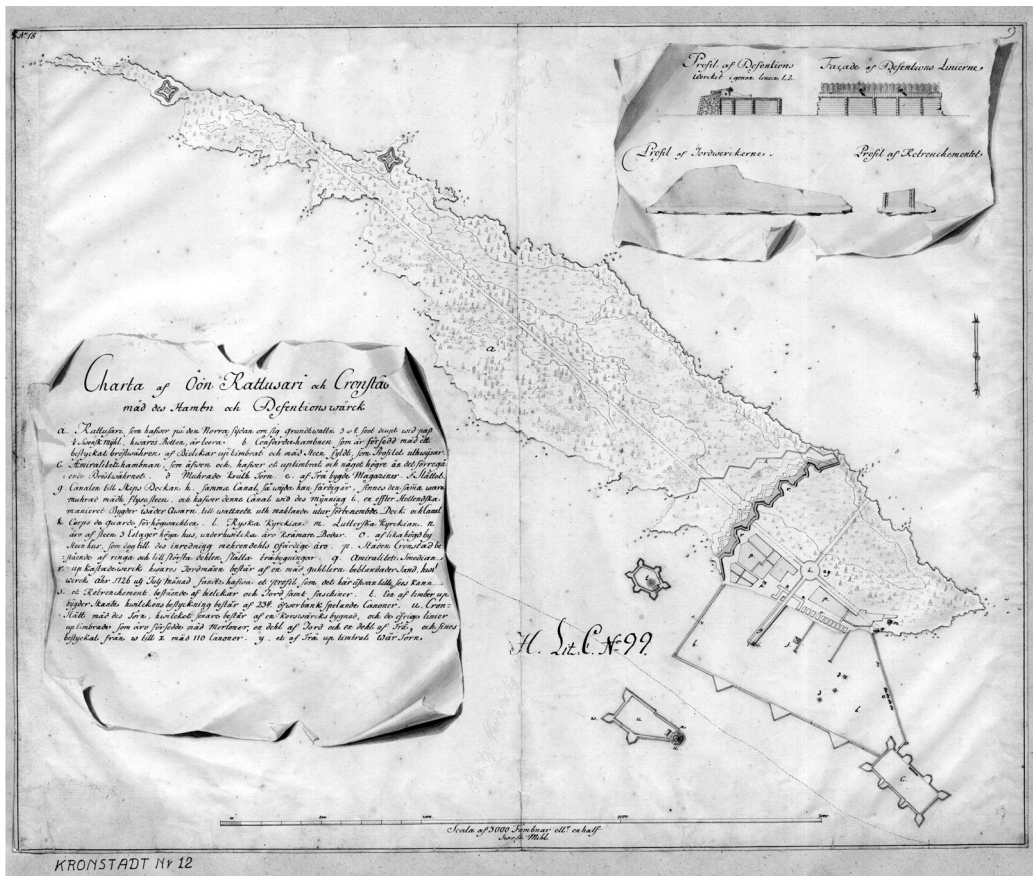 N:18
9
Profil af Defentions
wercket igenom linien 1.2.
Façade af Defentions Linierne
Profil af Jordwerckerne.
Profil af Retrenchementet
Charta af Öön Rattusari och Cronstad
mäd des Hambn och Defentionswärck
a. Rattusari, som hafwer på den Norra sydan om sig grundt watn 3 a 4 foot diupt wid pass
1 Swensk mihl, hwares Botten, är leera. b. hambnen som är försedd mäd ett
bestyckat bröstwähren, af Bielckar uptimbrat och mäd Steen fyldt, som Profilet uthwijsar.
C. Amiralitetz hambnan, som äfwen och hafwer et uptimbrat och något högre än det förregå
ende Bröstwährnet. d Muhrade Torn e. af Trä bygde Magaziner. f. Slåttet.
g. Canalen till Skeps Dockan. h. samma Canal, så wijda han färdig är, finnes den samma wara
muhrad mädh flysesteen, och hafwer denna Canal wid des mijning i. en effter Hollendska
manieret Bygder wäder Qwarn, till wattnetz uth mahlande utur förbenembte Dock och Canal
k. Corps de guards för högwachten. l. Ryska Kyrckian. m. Lutterska Kyrckian. n.
äro af steen 3 Estager höga hus, under hwilcka äro Krämare Bodar. O. af lika högd by
Steen hus, som ägg till des inredning mehrendehls ofärdige äro. p. Staden Cronstad be
stående af ringa och till största dehlen, slätta träbygningar. q. Amiralitets Smedian.
r. upkastade werck hwares Jordmänn består af en mäd guhl lera beblandadt Sand, hwilcket
werck åhr 1726 uti July månad, fandtz hafwa et profil, som det här ofwan till sees kann.
s. et Retrenchement, bestående af bielckar och Jord samt faschiner. t. Een af timber up
bygder Skantz hwilckens bestyckning består af 23 st. öfwer banck spelande Canoner. u. Cron-
Slått mäd des Torn, hwilcket senare består af en Korswärcks bygnad, och de öfrige linier
uptimbrade som äro försedde mäd Merloner, en dehl af Jord och en dehl af Trä, och fines
bestyckat från w till x mäd 110 Canoner. y. et af Trä uptimbrat Wär Torn.
a.
H. Lit. C. No 99.
Scala af 3000 Fambnar ellr en half
Swensk Mihl.
KRONSTADT Nr 12